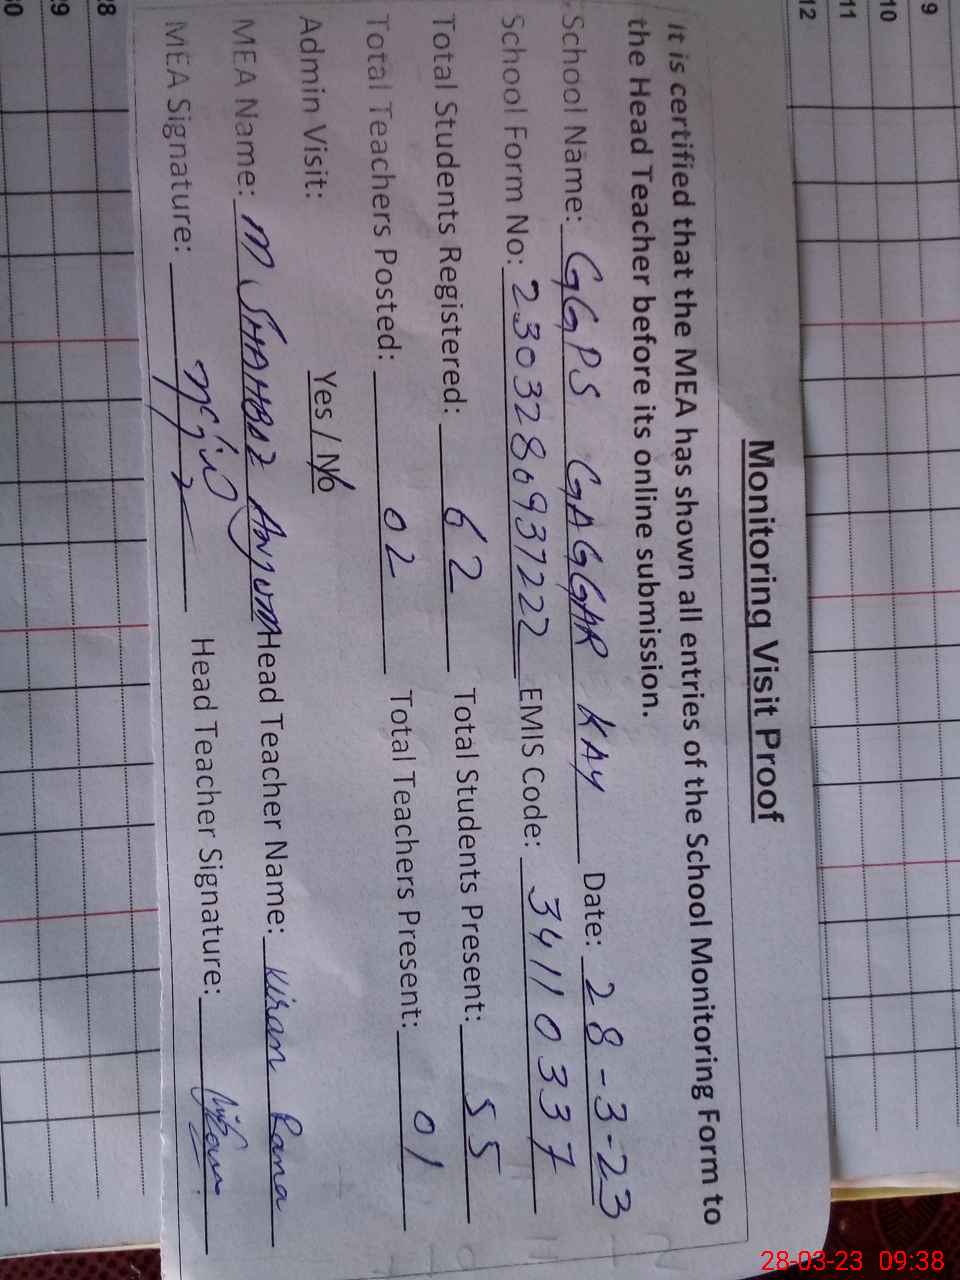 9
10
11
12
Monitoring Visit Proof
It is certified that the MEA has shown all entries of the School Monitoring Form to
the Head Teacher before its online submission.
School Name: GGPS GAGGAR KAY Date: 28-3-23
School Form No: 230328093722 EMIS Code: 34110337
Total Students Registered: 62 Total Students Present: 55
Total Teachers Posted: 02 Total Teachers Present: 01
Admin Visit: Yes / No
MEA Name: M SHAHBAZ Anjum Head Teacher Name: Kiran Rana
MEA Signature: Head Teacher Signature:
28
29
30
28-03-23 09:38